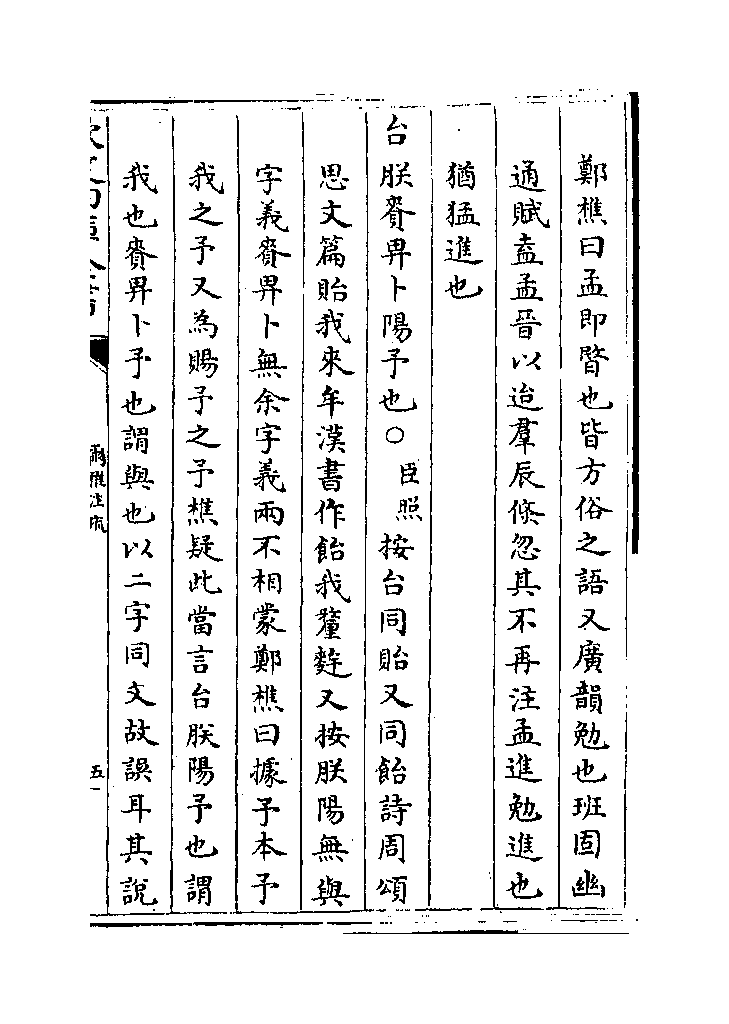 鄭樵曰孟即暋也皆方俗之語又廣韻勉也班固幽
通賦盍孟晉以迨羣辰倏忽其不再注孟進勉進也
猶猛進也
台朕賚畀卜陽予也○臣照按台同貽又同飴詩周頌
思文篇貽我來牟漢書作飴我釐麰又按朕陽無與
字義賚畀卜無余字義兩不相蒙鄭樵曰據予本予
我之予又為賜予之予樵疑此當言台朕陽予也謂
我也賚畀卜予也謂與也以二字同文故誤耳其說
爾雅注疏
五